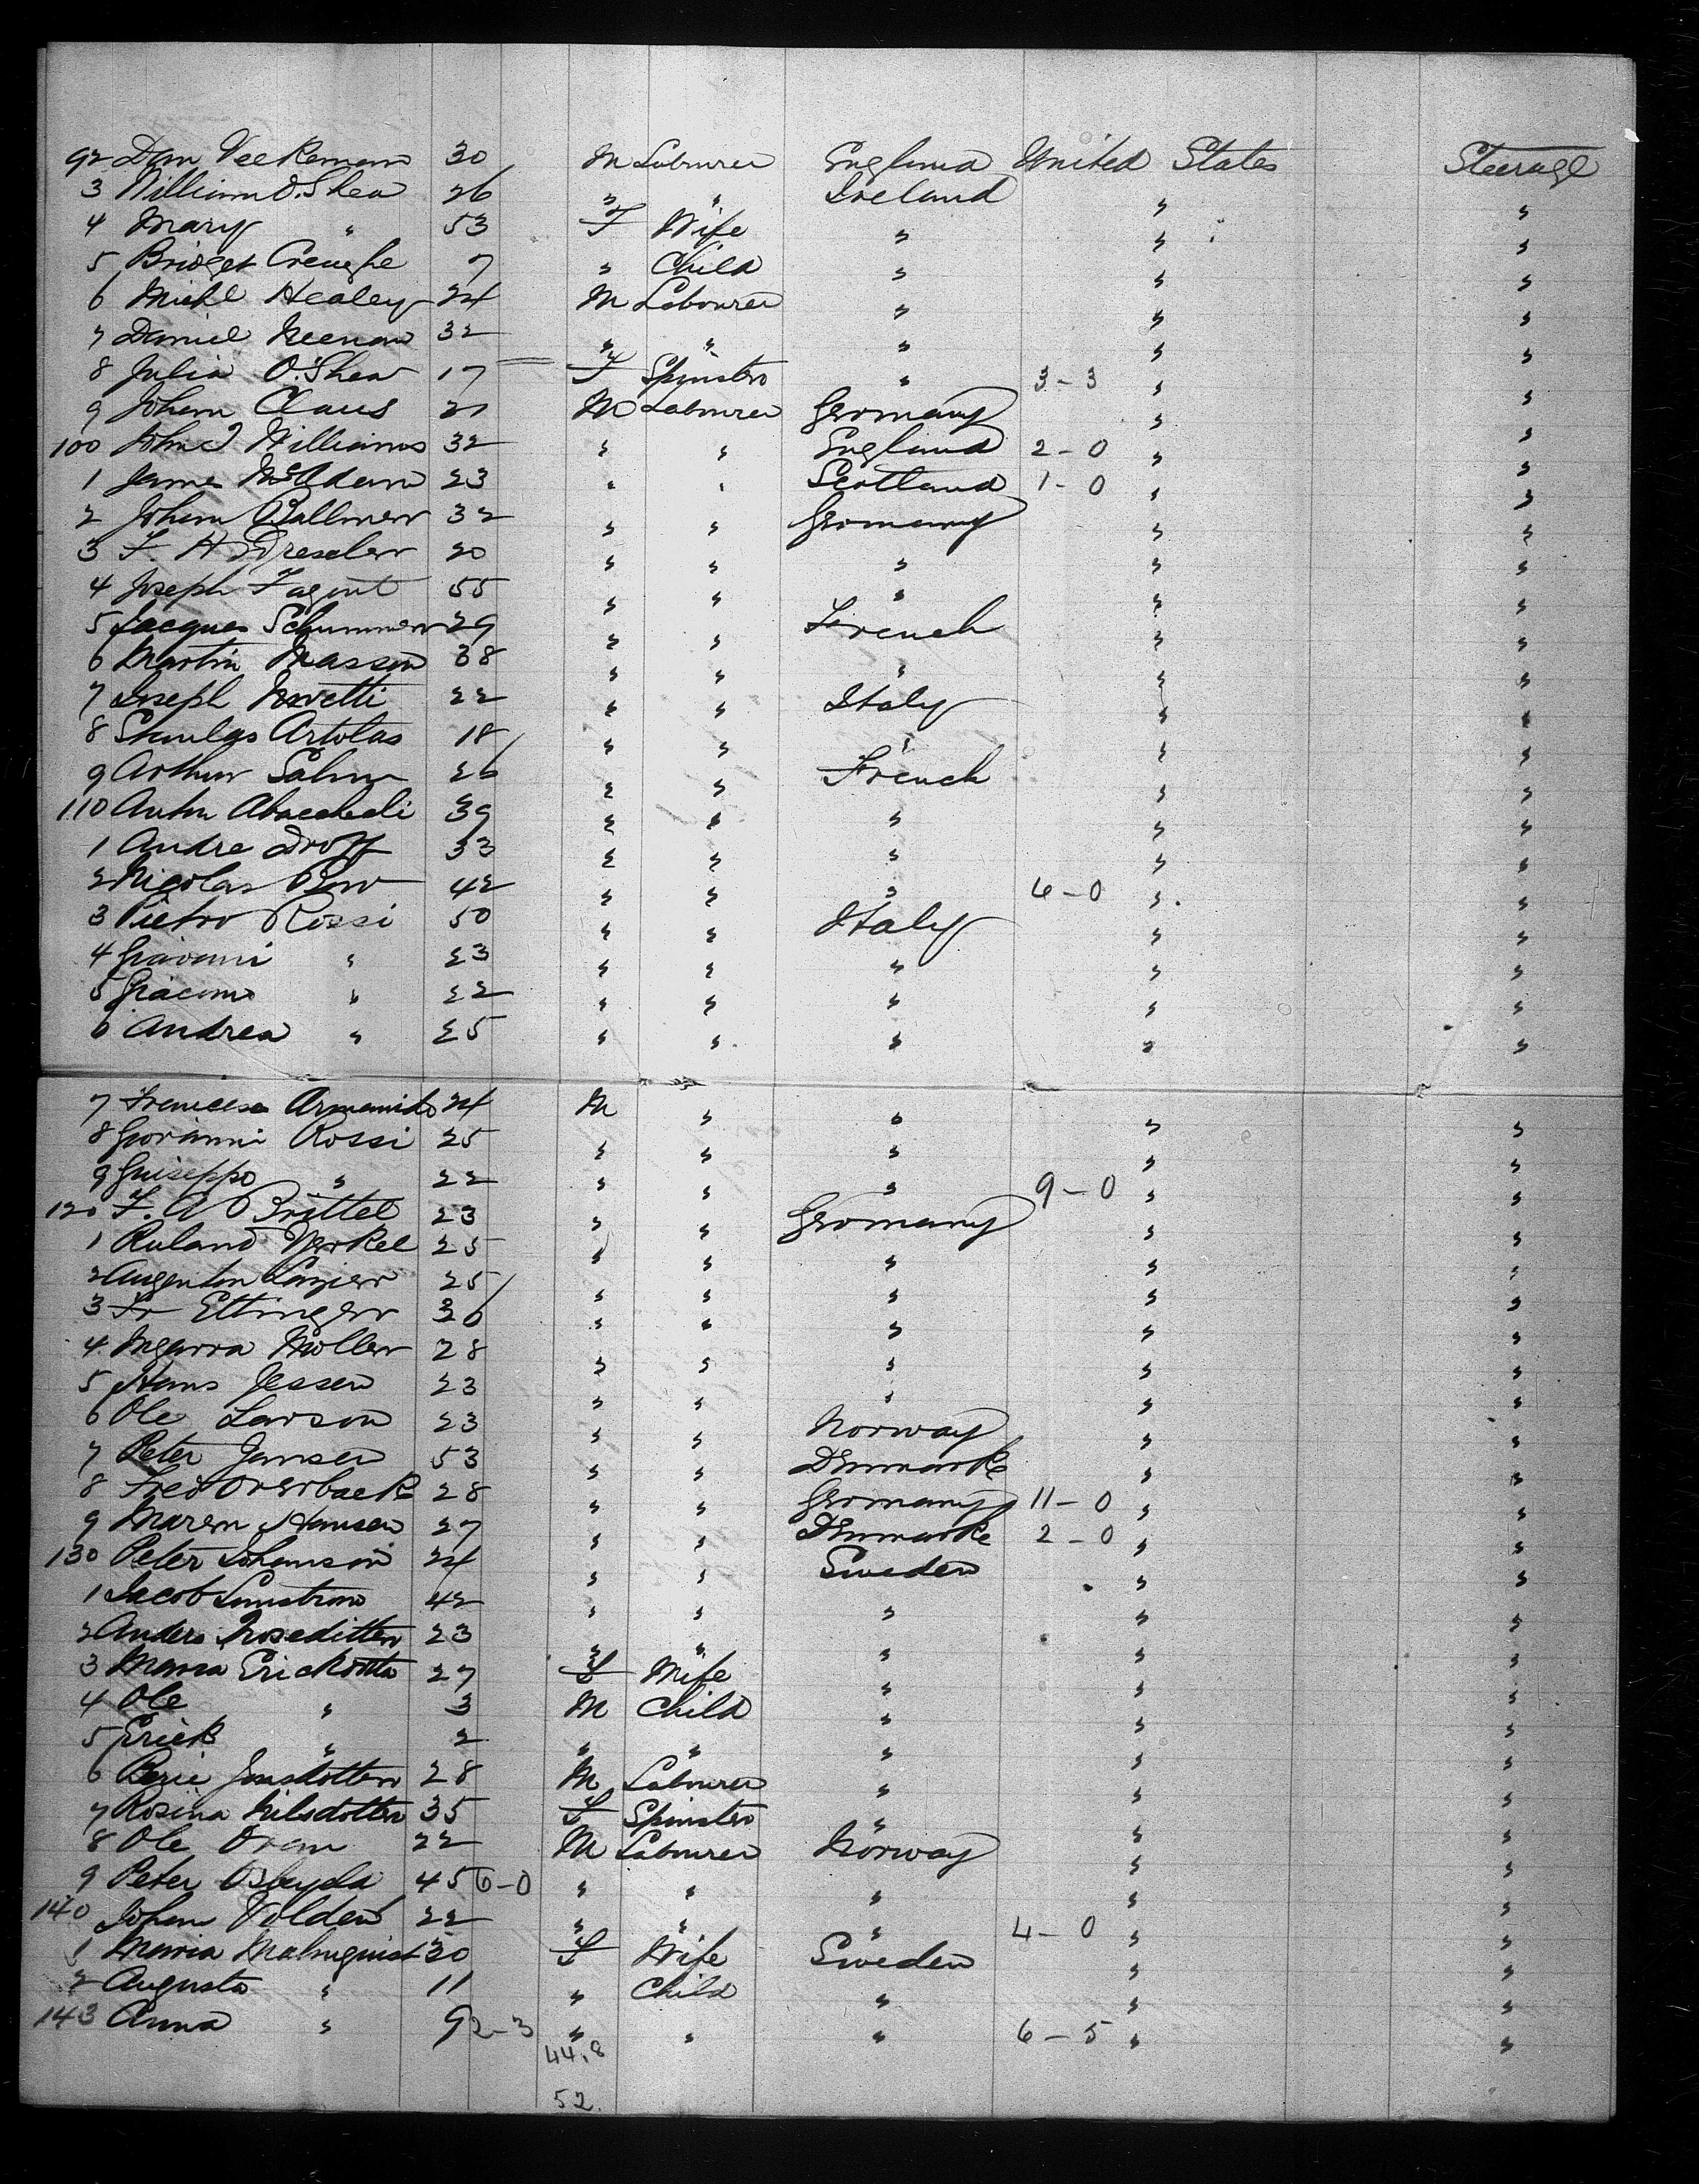 92 Dan Veekeman 30 M Labourer England United States Steerage
3 William O'Shea 26 " " Ireland " "
4 Mary " 53 F Wife " " "
5 Bridget Creaghe 7 " Child " " "
6 Michl Healey 24 M Labourer " " "
7 Daniel Keenan 32 " " " " "
8 Julia O'Shea 17 F Spinster " 3-3 " "
9 Johan Claus 21 M Labourer Germany " "
100 John J Williams 32 " " England 2-0 " "
1 James McAdam 23 " " Scotland 1-0 " "
2 Johan Ballmer 32 " " Germany " "
3 F. H. Dreseler 20 " " " " "
4 Joseph Fagent 55 " " " " "
5 Jacques Schummer 29 " " French " "
6 Martin Masson 38 " " " " "
7 Joseph 22 " " Italy " "
8 Artolas 18 " " " " "
9 Arthur Salm 26 " " French " "
110 Anton 39 " " " " "
1 Andre Droff 33 " " " " "
2 Nigolas 42 " " " 6-0 " "
3 Pietro Rossi 50 " " Italy " "
4 Giavani " 23 " " " " "
5 Giacomo " 22 " " " " "
6 Andrea " 25 " " " " "
7 Francesca 24 M " " " "
8 Giovanni Rossi 25 " " " " "
9 Guiseppo " 22 " " " 9-0 " "
120 F. A. Brittel 23 " " Germany " "
1 Ruland Merkel 25 " " " " "
2 Lazier 25 " " " " "
3 Fr Ettinger 36 " " " " "
4 Moller 28 " " " " "
5 Hans Jessen 23 " " " " "
6 Ole Larson 23 " " Norway " "
7 Peter Jansen 53 " " Denmark " "
8 Fred Overback 28 " " Germany 11-0 " "
9 Maren Hansen 27 " " Denmark 2-0 " "
130 Peter Johanson 24 " " Sweden " "
1 Jacob Lunstrom 42 " " " " "
2 Anders 23 " " " " "
3 Maria 27 F Wife " " "
4 Ole " 3 M Child " " "
5 Erick " 2 " " " " "
6 Jonsdotter 28 M Labourer " " "
7 Rosina Nilsdotter 35 F Spinster " " "
8 Ole Oven 22 M Labourer Norway " "
9 Peter 45 6-0 " " " " "
140 Johan Volden 22 " " " 4-0 " "
1 Maria Malmquist 30 F Wife Sweden " "
2 Augusta " 11 " Child " " "
143 Anna " 9 2-3 " " " 6-5 " "
44.8
52.